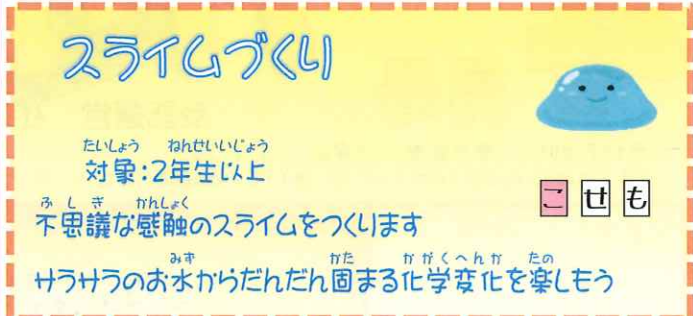 スライムづくり
たいしょう ねんせいいじょう
対象:2年生以上
こ せ も
ふしぎ かんしょく
不思議な感触のスライムをつくります
みず かた かがくへんか たの
サラサラのお水からだんだん固まる化学変化を楽しもう